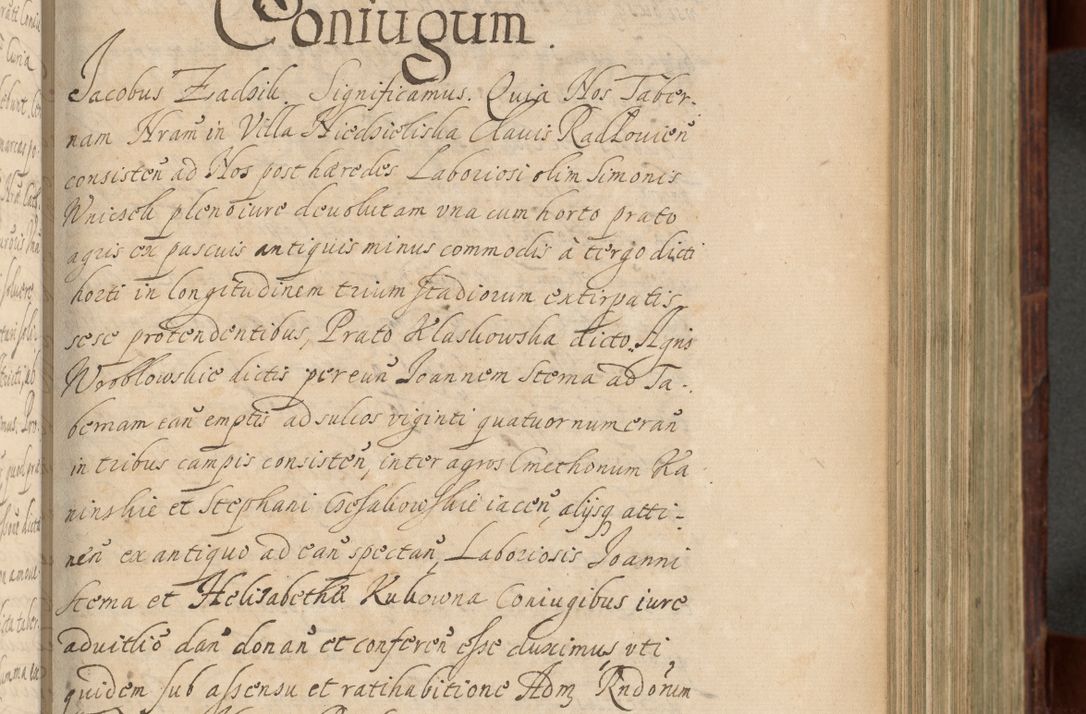 Coniugum.
Jacobus Zadzik. Significamus. Quia Nos Taber-
nam Nram in Villa Niedzieliska Clavis Radłouien̄
consisten̄ ad Nos post hæredes Laboriosi olim Simonis
Wniczek pleno iure deuolutam vna cum horto prato
agris ex pascuis antiquis minus commodis à tergo dicti
horti in longitudinem trium stadiorum extirpatis
sese protendentibus, Prato Klaskowska dicto, Agris
Wroblowskie dictis per eun̄ Joannem Stema ad Ta-
bernam ean̄ emptis ad sulcos viginti quatuor numeran̄
in tribus campis consisten̄, inter agros Cmethonum Ka-
ninskie et Stephani iacen̄, alijsq atti-
nen̄ ex antiquo ad ean̄ spectan̄, Laboriosis Joanni
Stema et Helisabethæ Kukowna Coniugibus iure
aduitlio dan̄ donan̄ et conferen̄ esse duximus vti
quidem sub assensu et ratihabitione Adm Rndorum